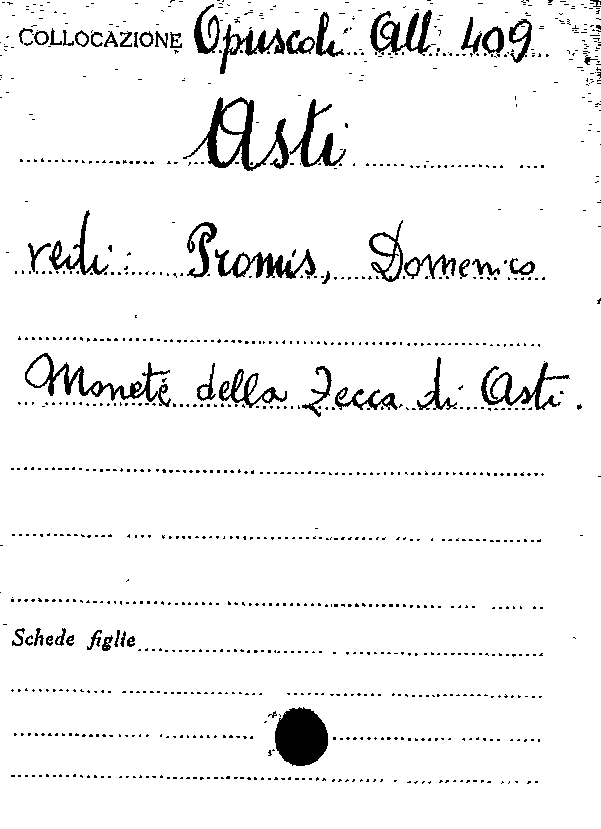 COLLOCAZIONE Opuscoli All. 409
Asti
vedi: Promis, Domenico
Monete della Zecca di Asti.
Schede figlie